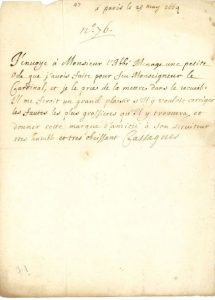 a paris le 28 may 1664
n.° 76.
J'envoye à Monsieur l'Abbé Menage une petite
Ode que j'avois faite pour feu Monseigneur le
Cardinal, et je le prie de la mettre dans le recueil.
Il me feroit un grand plaisir s'il y vouloit corriger
les fautes les plus grossieres qu'il y trouvera, et
donner cette marque d'amitié à son serviteur
tres humble et tres obeissant Cassagnes